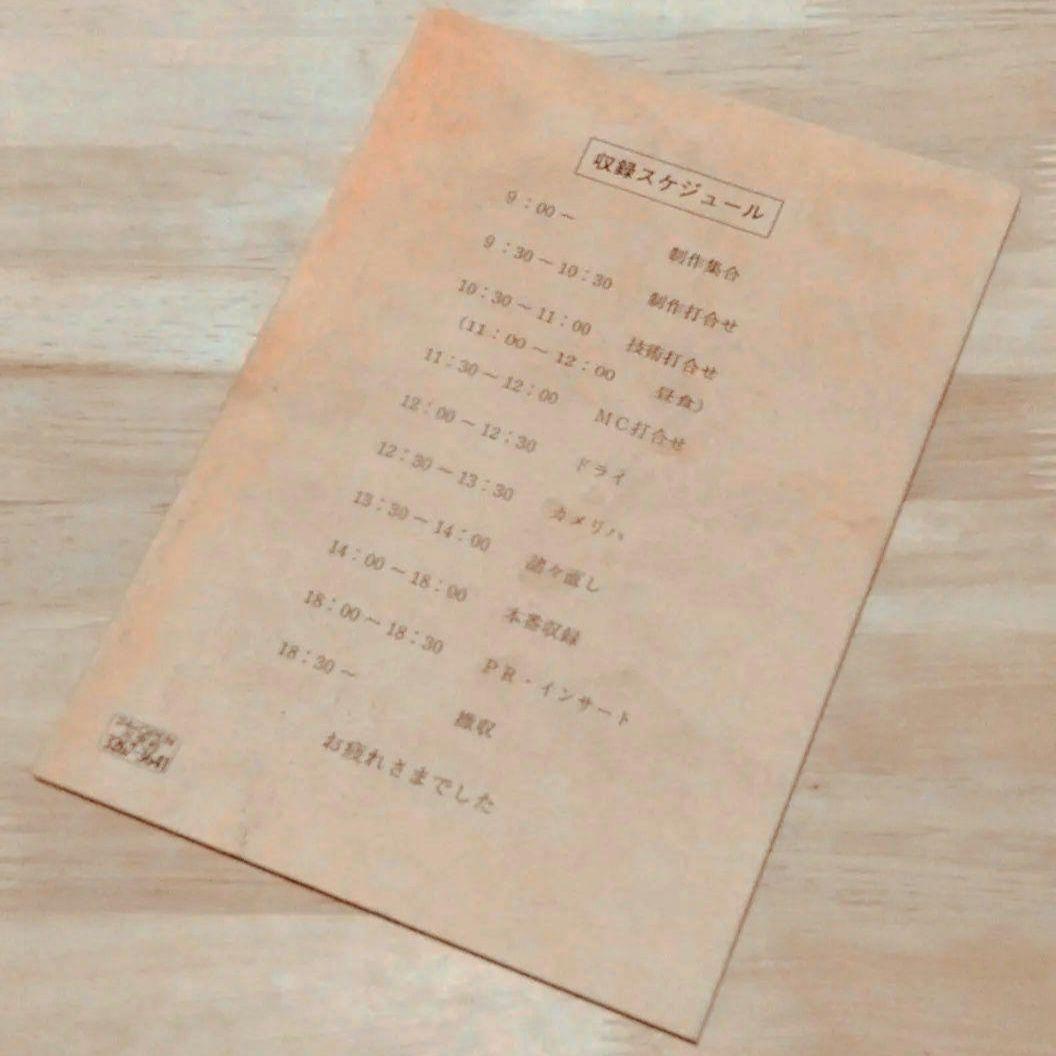 収録スケジュール
9：00～　制作集合
9：30～10：30　制作打合せ
10：30～11：00　技術打合せ
（11：00～12：00　昼食）
11：30～12：00　MC打合せ
12：00～12：30　ドライ
12：30～13：30　カメリハ
13：30～14：00　諸々直し
14：00～18：00　本番収録
18：00～18：30　PR・インサート
18：30～　撤収
お疲れさまでした